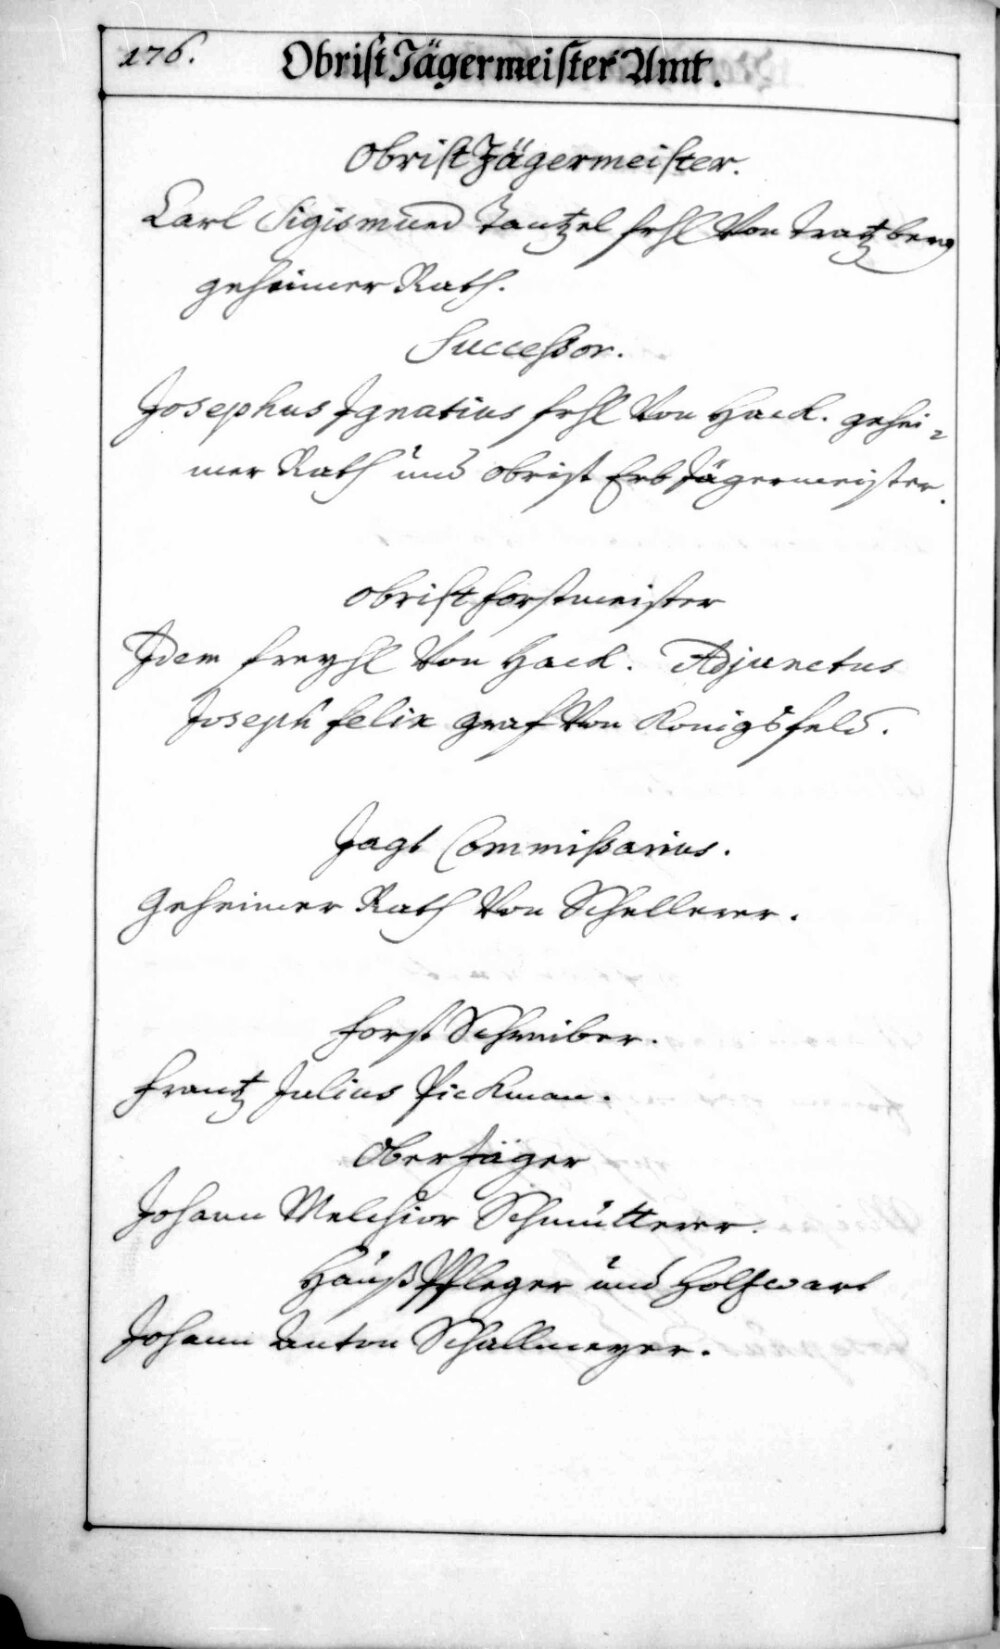 176.
Obrist Jägermeister Amt.
Obrist Jägermeister.
Carl Sigismund Tantzel frhl Von Tratzberg
geheimer Rath.
Successor.
Josephus Ignatius frhl Von Hack. gehei-
mer Rath und obrist Erb Jägermeister.
obrist forstmeister
Idem freyhl Von Hack. Adjunctus
Joseph felix graf Von Konigsfeld.
Jagt Commissarius.
Geheimer Rath Von Schellerer.
forst Schreiber.
frantz Julius Pickman.
Ober Jäger
Johann Melchior Schmütterer.
Hauß Pfleger und Holtzwart
Johann Anton Schallmeyer.